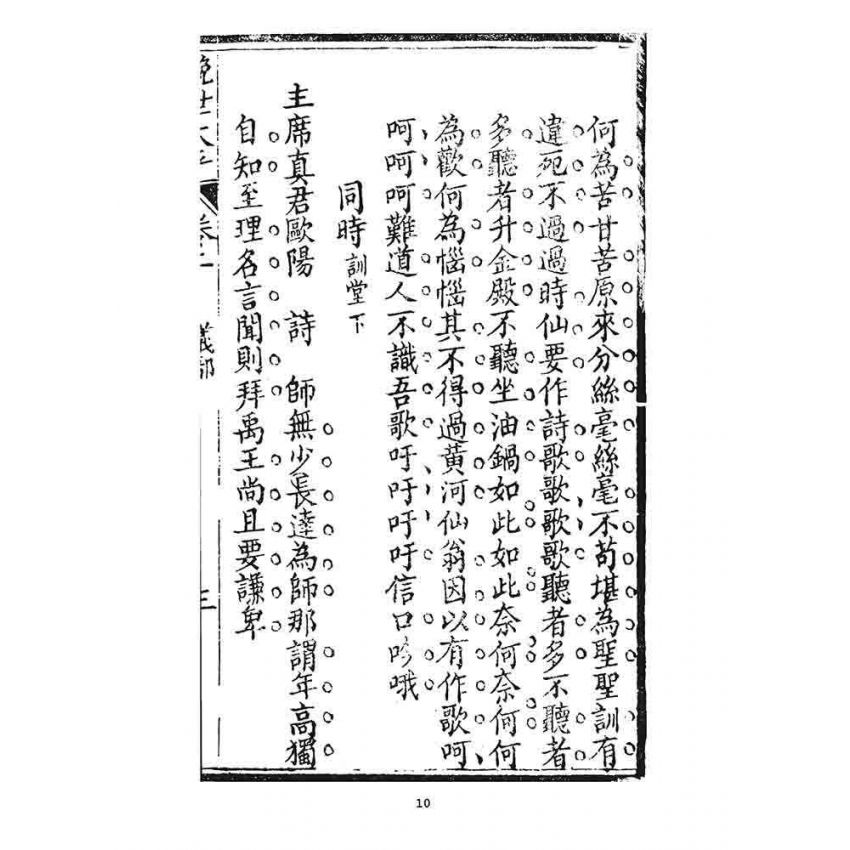 何為苦甘苦原來分絲毫絲毫不苟堪為聖聖訓有
違宛不過過時仙要作詩歌歌歌歌聽者多不聽者
多聽者升金殿不聽坐油鍋如此如此奈何奈何何
為歡何為惱惱其不得過黃河仙翁因以有作歌呵
呵呵呵難道人不識吾歌吁吁吁吁信口吟哦
同時訓堂下
主席真君歐陽 詩 師無少長達為師那謂年高獨
自知至理名言聞則拜禹王尚且要謙卑
卷二 儀部 三
10